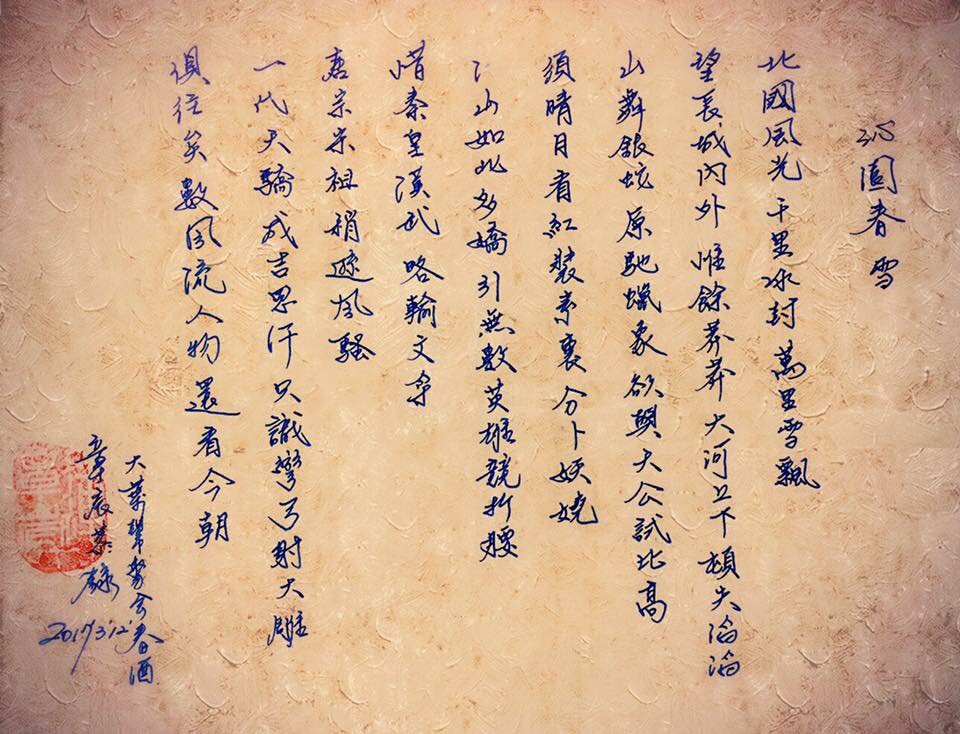 沁園春 雪
北國風光 千里冰封 萬里雪飄
望長城內外 惟餘莽莽 大河上下 頓失滔滔
山舞銀蛇 原馳蠟象 欲與天公試比高
須晴日 看紅裝素裹 分卜妖嬈
江山如此多嬌 引無數英雄競折腰
惜秦皇漢武 略輸文采
唐宗宋祖 稍遜風騷
一代天驕 成吉思汗 只識彎弓射大雕
俱往矣 數風流人物 還看今朝
大 會春酒
章
2017 3 12